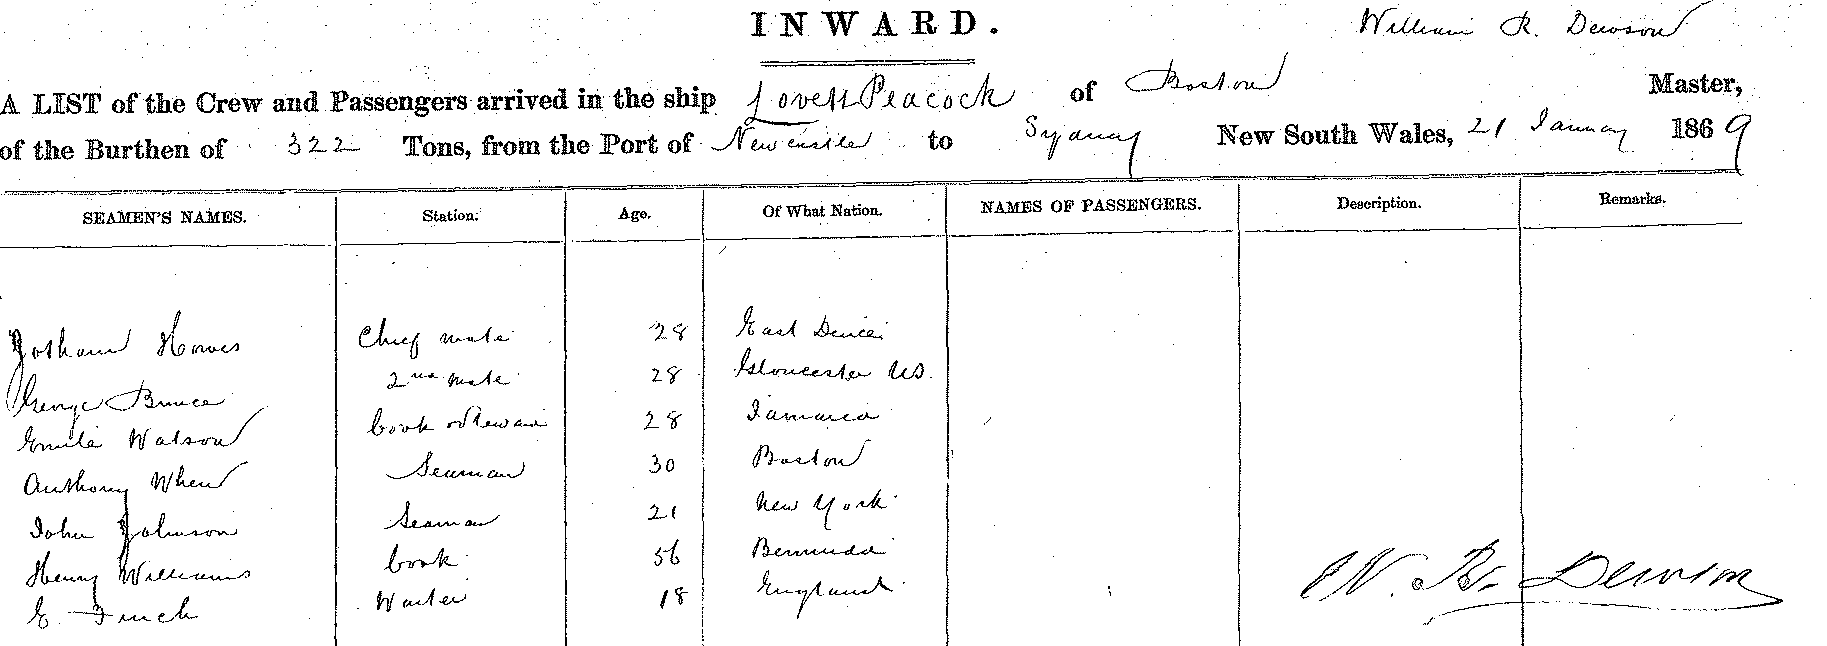 INWARD.
William R. Dewson
A LIST of the Crew and Passengers arrived in the ship Lovett Peacock of Boston Master,
of the Burthen of 322 Tons, from the Port of Newcastle to Sydney New South Wales, 21 January 1869
SEAMEN'S NAMES. Station. Age. Of What Nation. NAMES OF PASSENGERS. Description. Remarks.
Jotham Howes Chief mate 28 East Dennis
George Bruce 2nd mate 28 Gloucester US.
Emile Watson Cook & Steward 28 Jamaica
Anthony When Seaman 30 Boston
John Johnson Seaman 21 New York
Henry Williams Cook 56 Bermuda
E. Finch Waiter 18 England
W. R. Dewson